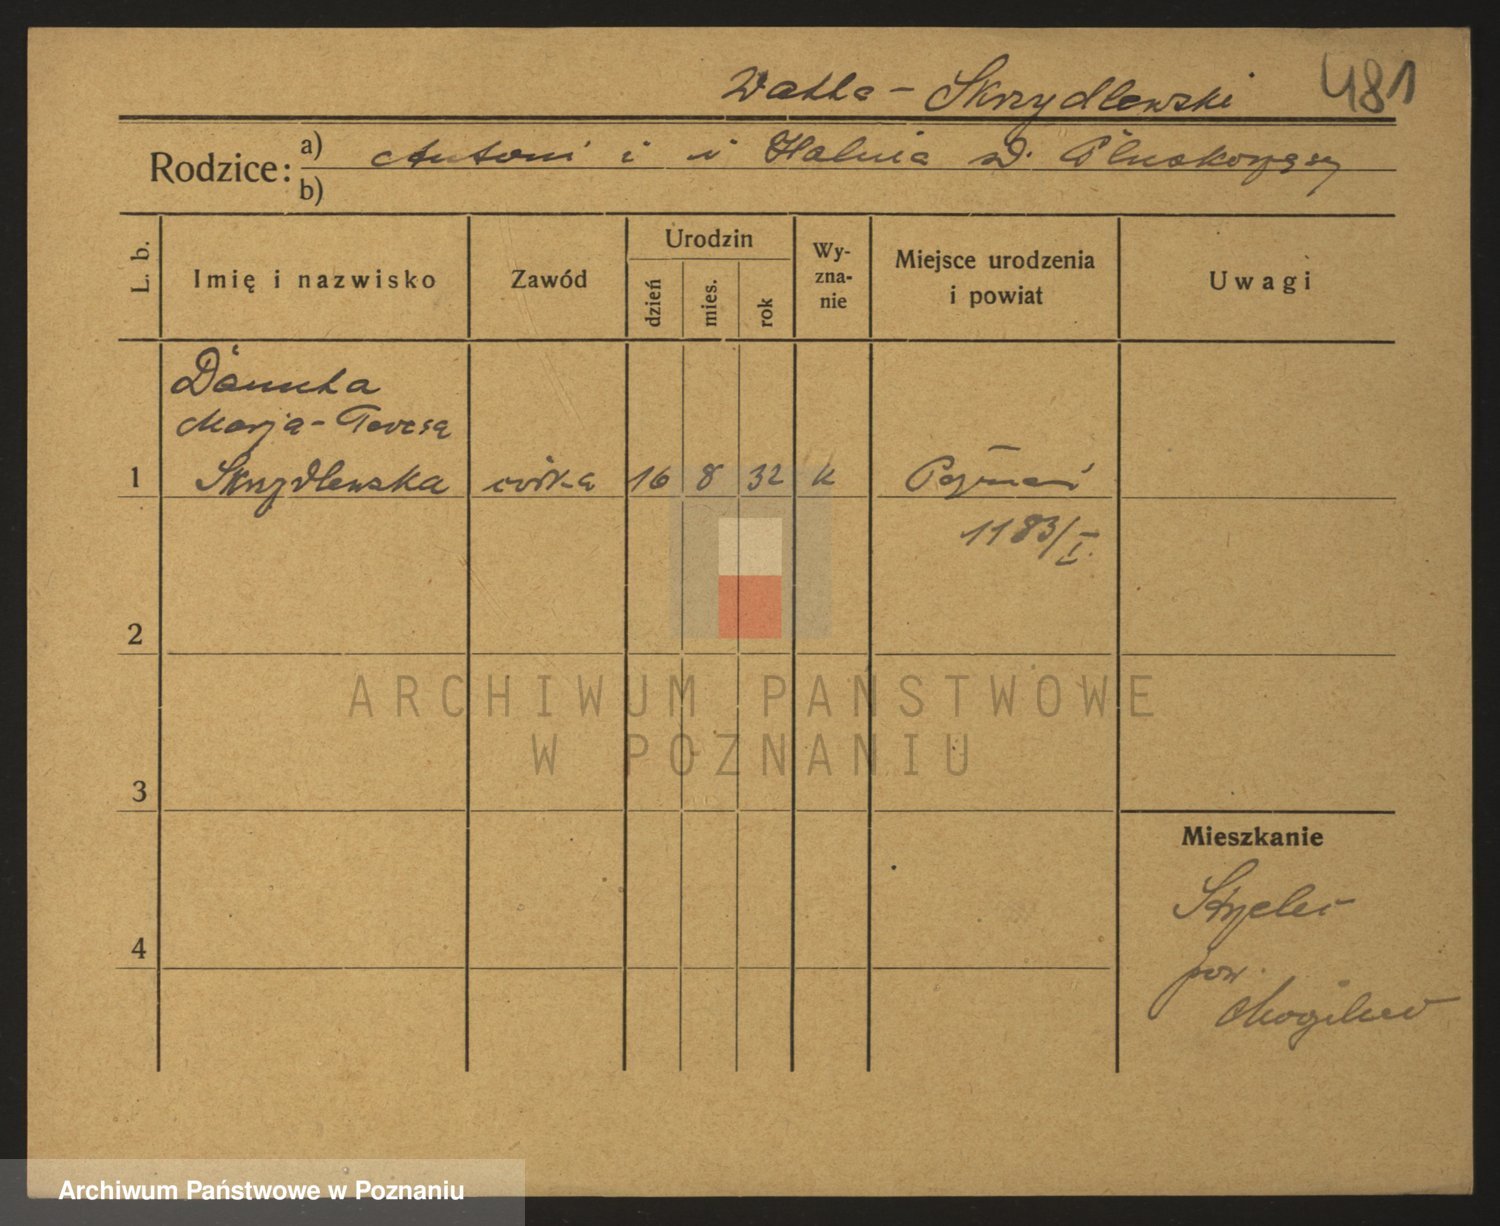 Watta - Skrzydlewski 481
Rodzice: a) Antoni i Halina d.
b)
L. b. Imię i nazwisko Zawód Urodzin dzień mies. rok Wy-zna-nie Miejsce urodzenia i powiat Uwagi
Danuta
Marja - Teresa
1 Skrzydlewska córka 16 8 32 k Poznań
1183/I.
2
ARCHIWUM PAŃSTWOWE
W POZNANIU
3
Mieszkanie
Strzelce
4
pow.
Mogilno
Archiwum Państwowe w Poznaniu